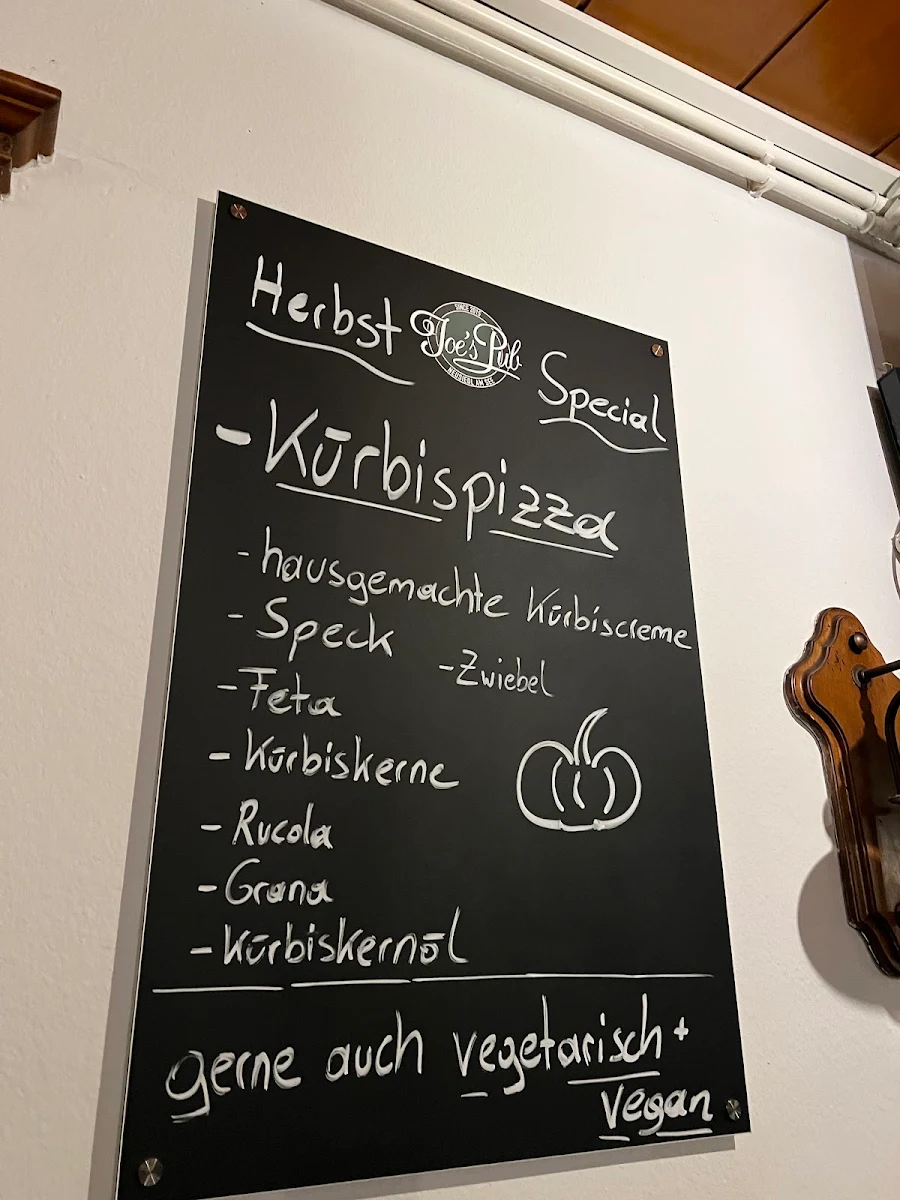 Herbst Special
SINCE 2015
Joe's Pub
NEUSIEDL AM SEE
- Kürbispizza
- hausgemachte Kürbiscreme
- Speck
- Zwiebel
- Feta
- Kürbiskerne
- Rucola
- Grana
- Kürbiskernöl
gerne auch vegetarisch +
vegan